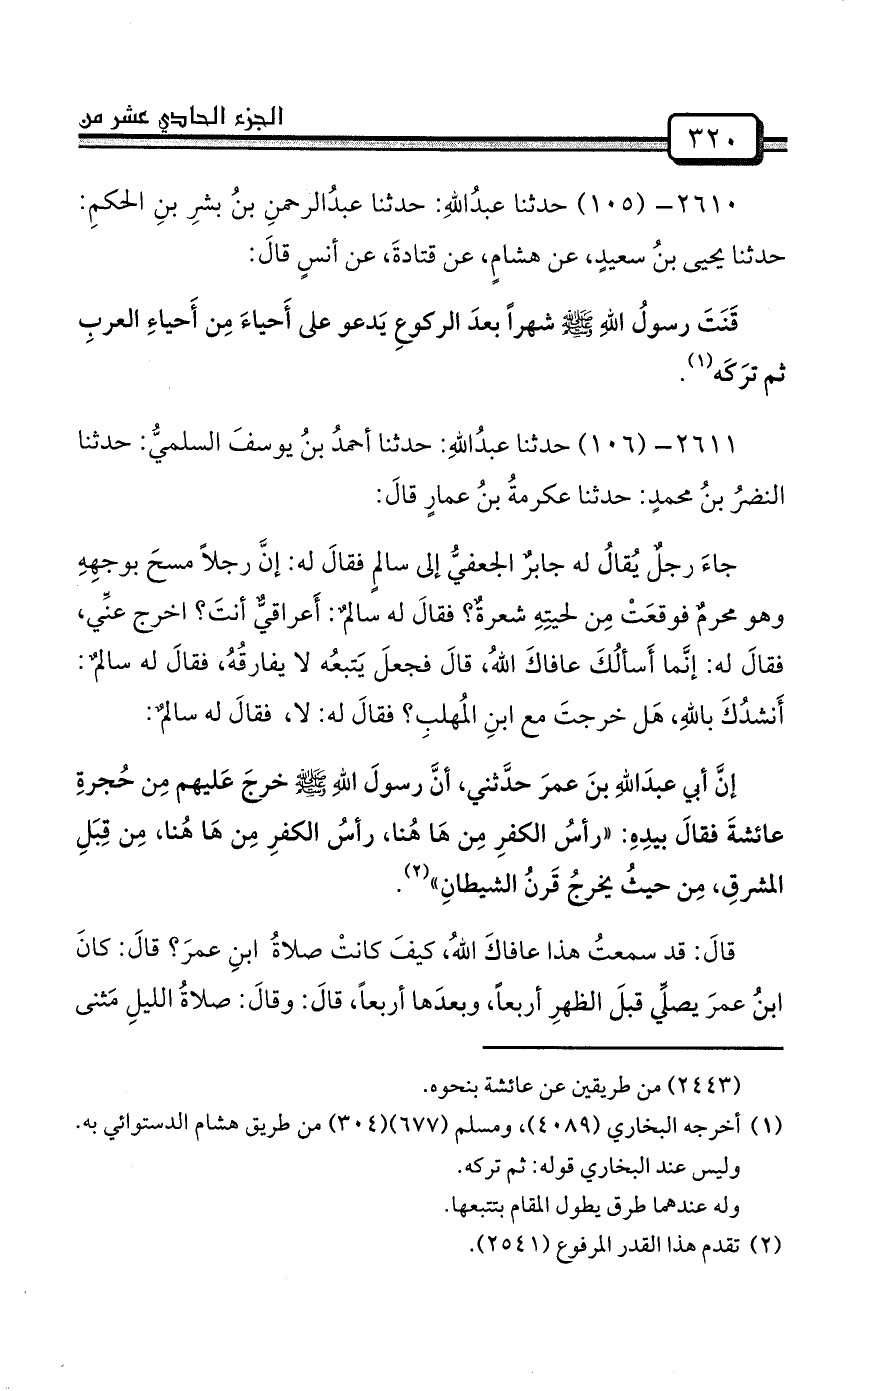 الجزء الحادي عشر من
٣٢٠
٢٦١٠- (١٠٥) حدثنا عبدُاللهِ: حدثنا عبدُالرحمنِ بنُ بشرِ بنِ الحكمِ:
حدثنا يحيى بنُ سعيدٍ، عن هشامٍ، عن قتادةَ، عن أنسٍ قالَ:
قَنَتَ رسولُ اللهِ ﷺ شهراً بعدَ الركوعِ يَدعو على أَحياءَ مِن أَحياءِ العربِ
ثم ترَكَه(١).
٢٦١١- (١٠٦) حدثنا عبدُاللهِ: حدثنا أحمدُ بنُ يوسفَ السلميُّ: حدثنا
النضرُ بنُ محمدٍ: حدثنا عكرمةُ بنُ عمارٍ قالَ:
جاءَ رجلٌ يُقالُ له جابرٌ الجعفيُّ إلى سالمٍ فقالَ له: إنَّ رجلاً مسحَ بوجهِهِ
وهو محرمٌ فوقعَتْ مِن لحيتِهِ شعرةٌ؟ فقالَ له سالمٌ: أَعراقيٌّ أنتَ؟ اخرج عنِّي،
فقالَ له: إنَّما أَسألُكَ عافاكَ اللهُ، قالَ فجعلَ يَتبعُه لا يفارقُهُ، فقالَ له سالمٌ:
أَنشدُكَ باللهِ، هَل خرجتَ مع ابنِ المُهلبِ؟ فقالَ له: لا، فقالَ له سالمٌ:
إنَّ أبي عبدَاللهِ بنَ عمرَ حدَّثني، أنَّ رسولَ اللهِ ﷺ خرجَ عَليهم مِن حُجرةِ
عائشةَ فقالَ بيدِهِ: «رأسُ الكفرِ مِن هَا هُنا، رأسُ الكفرِ مِن هَا هُنا، مِن قِبَلِ
المشرقِ، مِن حيثُ يخرجُ قَرنُ الشيطانِ»(٢).
قالَ: قد سمعتُ هذا عافاكَ اللهُ، كيفَ كانتْ صلاةُ ابنِ عمرَ؟ قالَ: كانَ
ابنُ عمرَ يصلِّي قبلَ الظهرِ أربعاً، وبعدَها أربعاً، قالَ: وقالَ: صلاةُ الليلِ مَثنى
(٢٤٤٣) من طريقين عن عائشة بنحوه.
(١) أخرجه البخاري (٤٠٨٩)، ومسلم (٦٧٧)(٣٠٤) من طريق هشام الدستوائي به.
وليس عند البخاري قوله: ثم تركه.
وله عندهما طرق يطول المقام بتتبعها.
(٢) تقدم هذا القدر المرفوع (٢٥٤١).